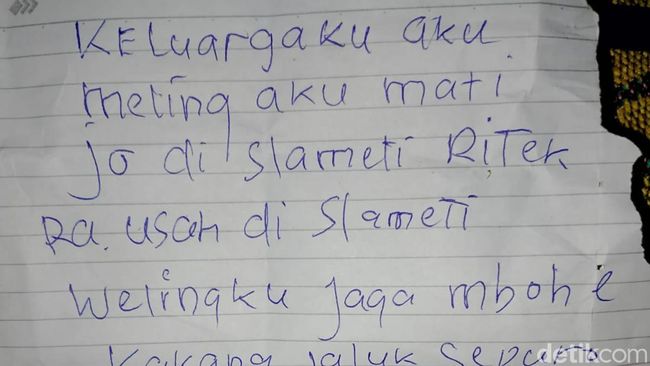 KELuargaku aku
meling aku mati
jo di slameti RiTek
RA. USAH di SlameTi
welingku jaga mboh e
Kakang jaluk sepura
detikcom